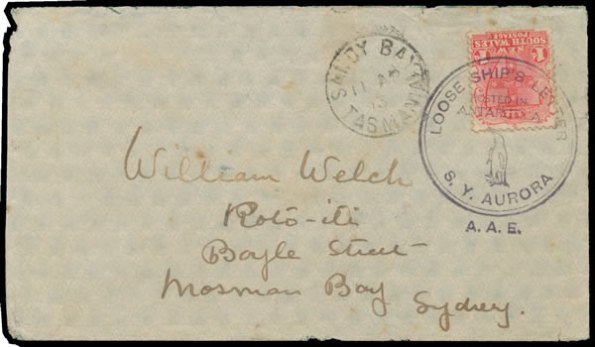 SANDY BAY
11 AP
13
TASMANIA
NEW
SOUTH WALES
POSTAGE
1
LOOSE SHIP'S LETTER
POSTED IN
ANTARCTICA
S. Y. AURORA
A. A. E.
William Welch
Roto-iti
Boyle Street
Mosman Bay
Sydney.